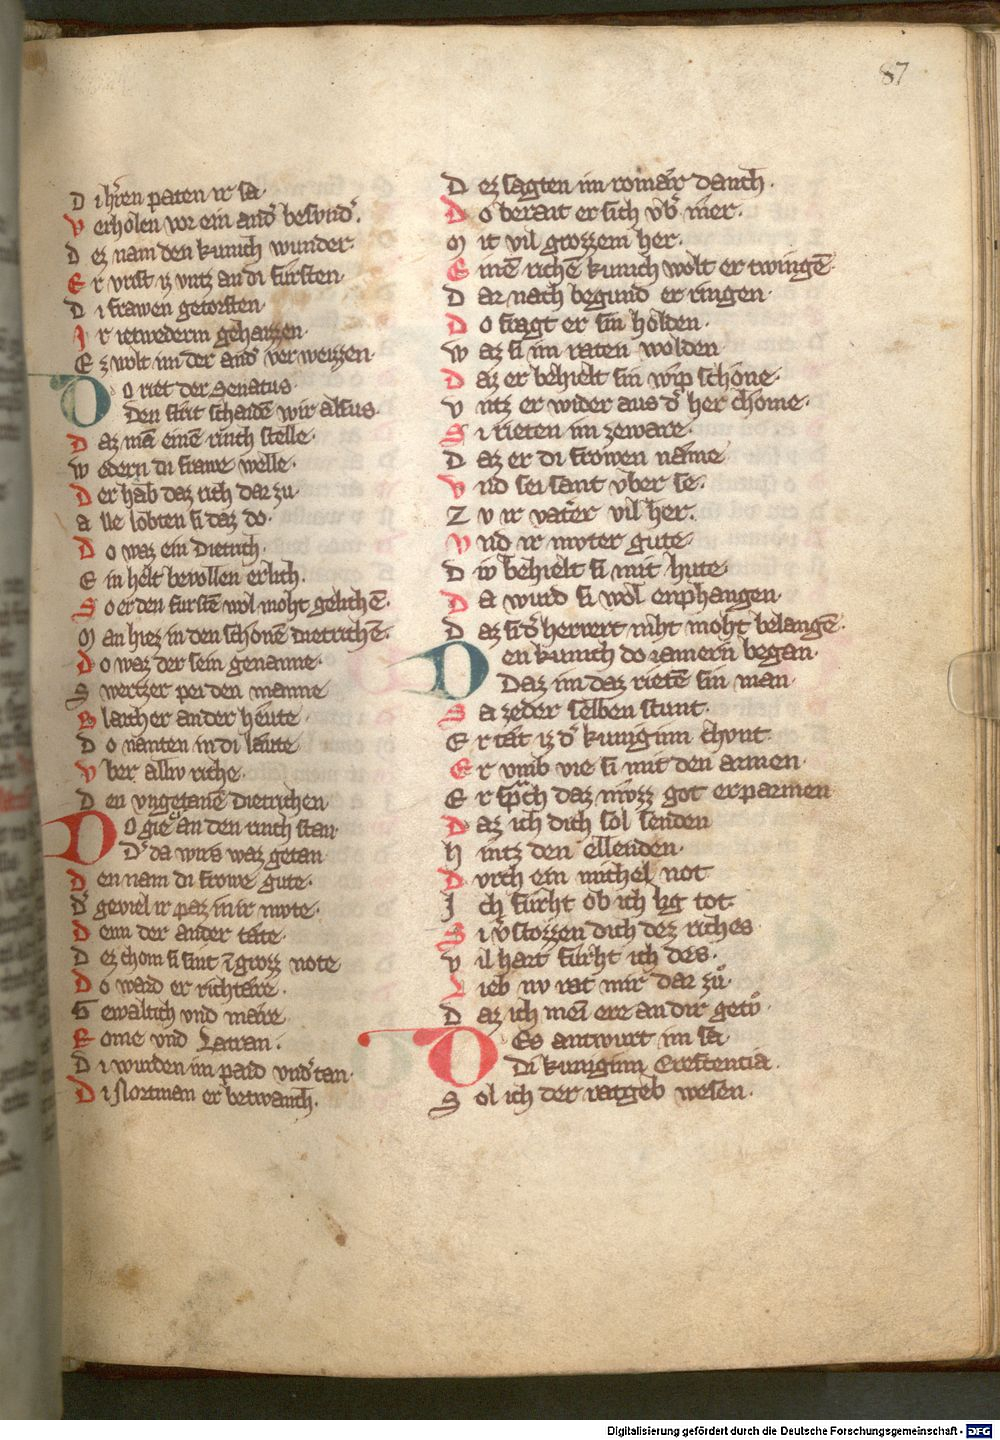 87
Di hr̄en paten ir sa·
Verholen vor ein and͛ besvnd͛.
Dez nam den kunich wunder·
Er vrist iz vntz an di fursten·
Di frawen getorsten·
Ir ietwederm gehaizzen·
Ez wolt im der and͛ verweizzen·
Do riet der Senatus·
Den strit schaidē wir alsus·
Daz mā einē rinch stelle·
Wedern di frawe welle·
Der hab daz rich dar zu·
Alle lobten si daz do·
Do waz ein Dietrich·
Ein helt bevollen erlich.
So er den furstē wol moht gelichē·
Man hiez in den schonē dietrichē·
Do waz der sein genanne·
Swertzer pei den manne
Blaicher an der heute·
Do nanten in di laute
Vber alliv riche·
Den vngetanē Dietrichen
Do gie an den rinch stan·
D͛ da wirs waz getan·
Den nam di frowe gute·
D͛ geviel ir paz in ir mvte·
Denn der ander tate·
Dez chom si sint ī grozz note
Do ward er richtare·
Gewaltich vnd mare·
Rome vnd Latran.
Di wurden im paid vnd͛tan·
Di Nortman er betwanch.
Dez sagten im romar danch·
Do berait er sich vb͛ mer·
Mit vil grozzem her·
Einē richē kunich wolt er twingē·
Dar nach begund er ringen·
Do fragt er sin holden·
Waz si im raten wolden
Daz er behielt sin wip schone·
Vntz er wider aus d͛ her chome·
Si rieten im zeware·
Daz er di frowen name
Vnd sei sant vber se·
Zv ir vater vil her.
Vnd ir mvter gute·
Div behielt si mit hute·
Da wurd si wol enphangen·
Daz si d͛ hervert niht moht belangē·
Den kunich do iamern began·
Daz im daz rietē sin man·
Sa zeder selben stunt·
Er tat iz d͛ kuniginn chunt·
Er vmb vie si mit den armen·
Er sp͛ch daz mvzz got erparmen
Daz ich dich sol senden
Hintz den ellenden·
Dvrch ein michel not
Ich furht ob ich lig tot
Si v͛stozzen dich dez riches
Vil hart furht ich des·
Lieb nv rat mir dar zů·
Daz ich meī ere an dir getů·
Des antwurt im sa·
Di kuniginn Crestentia·
Sol ich der ratgeb wesen·
Digitalisierung gefördert durch die Deutsche Forschungsgemeinschaft - DFG